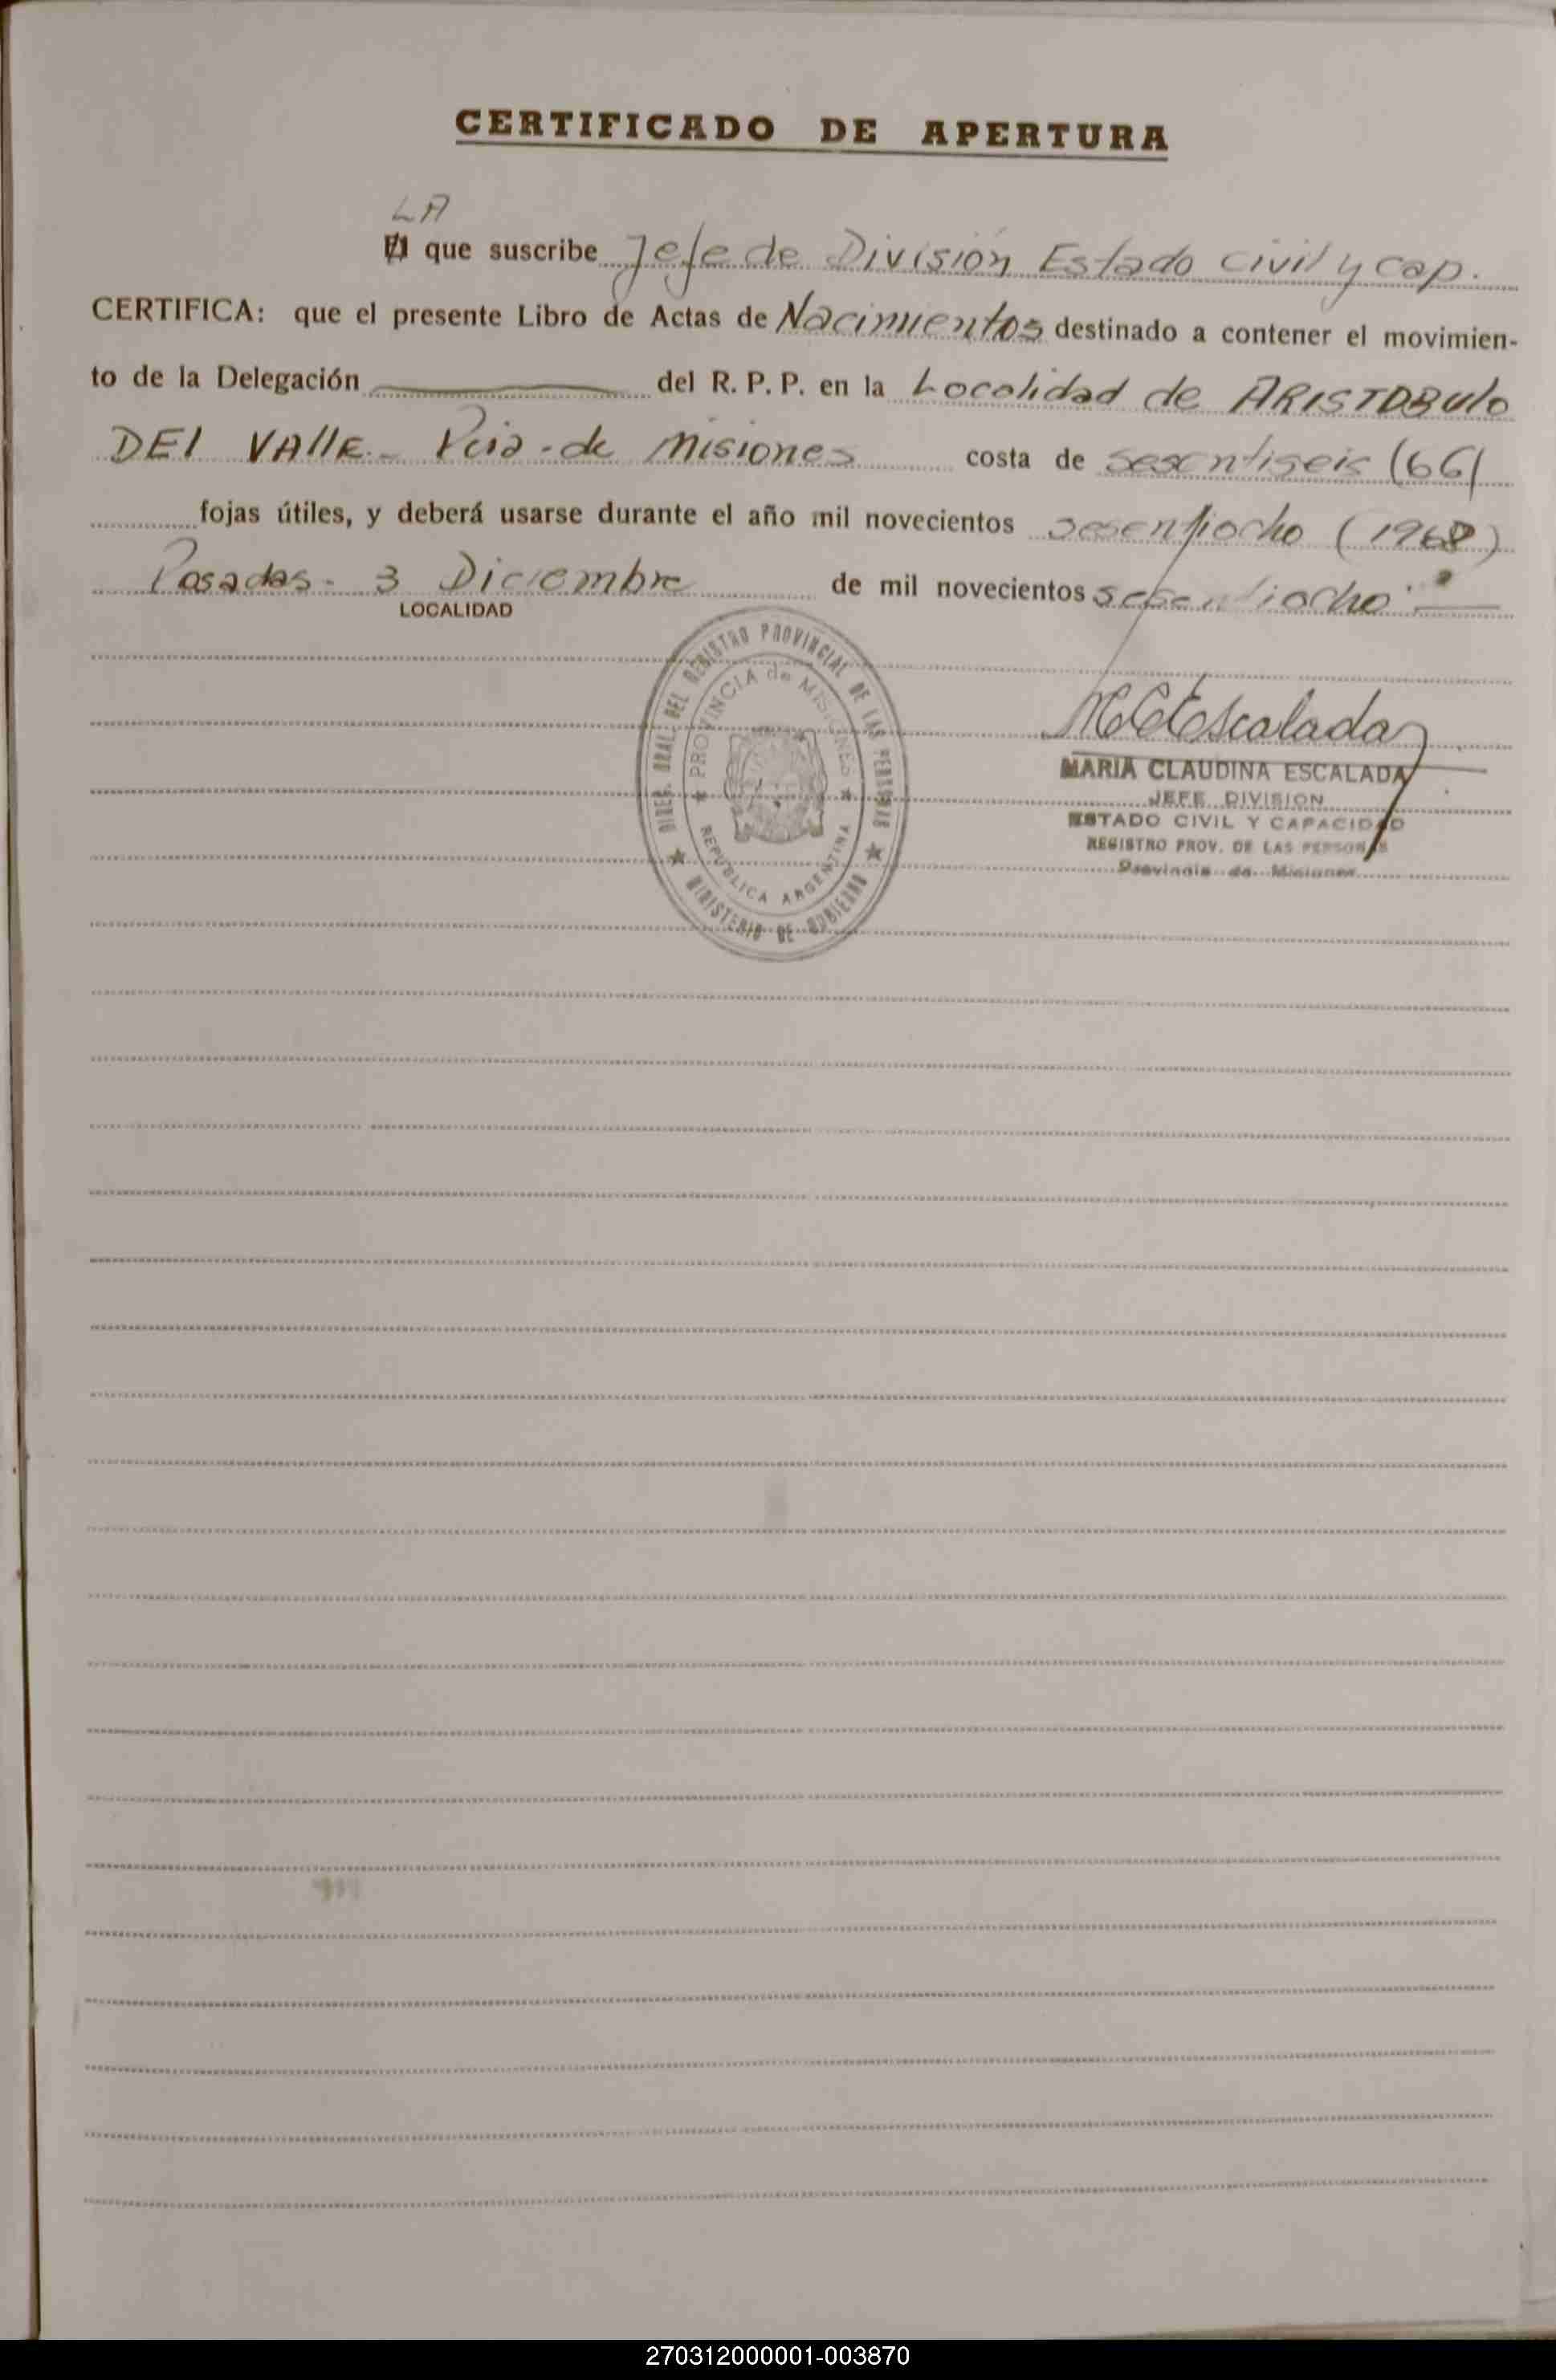 CERTIFICADO DE APERTURA
LA
El que suscribe Jefe de División Estado civil y cap.
CERTIFICA: que el presente Libro de Actas de Nacimientos destinado a contener el movimien-
to de la Delegación del R. P. P. en la Localidad de ARISTOBULO
DEl VAllE - Pcia - de Misiones costa de sesentiseis (66)
fojas útiles, y deberá usarse durante el año mil novecientos sesentiocho (1968)
Posadas - 3 Diciembre de mil novecientos sesentiocho
LOCALIDAD
DIREC. GRAL. DEL REGISTRO PROVINCIAL DE LAS PERSONAS
PROVINCIA de MISIONES
REPUBLICA ARGENTINA
MINISTERIO DE GOBIERNO
MCEscalada
MARIA CLAUDINA ESCALADA
JEFE DIVISION
ESTADO CIVIL Y CAPACIDAD
REGISTRO PROV. DE LAS PERSONAS
Provincia de Misiones
270312000001-003870